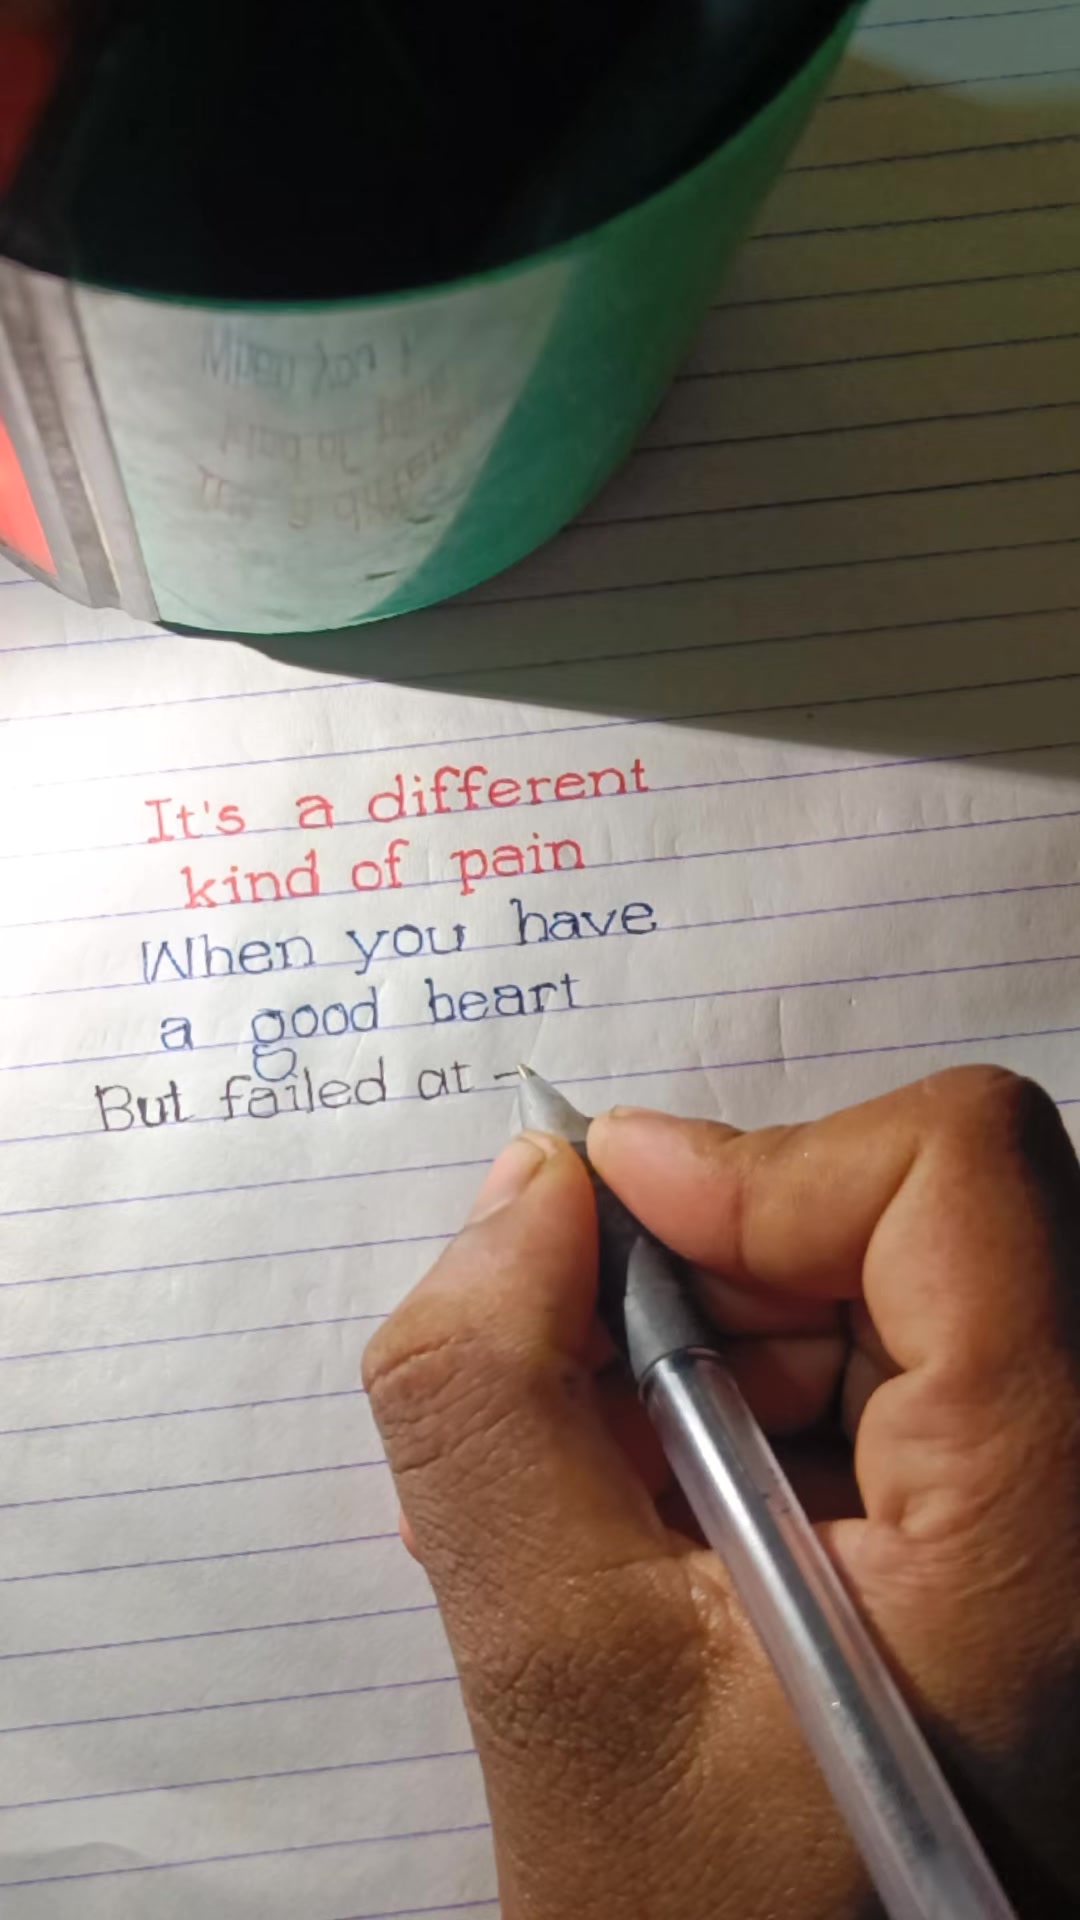 It's a different
kind of pain
When you have
a good heart
But failed at